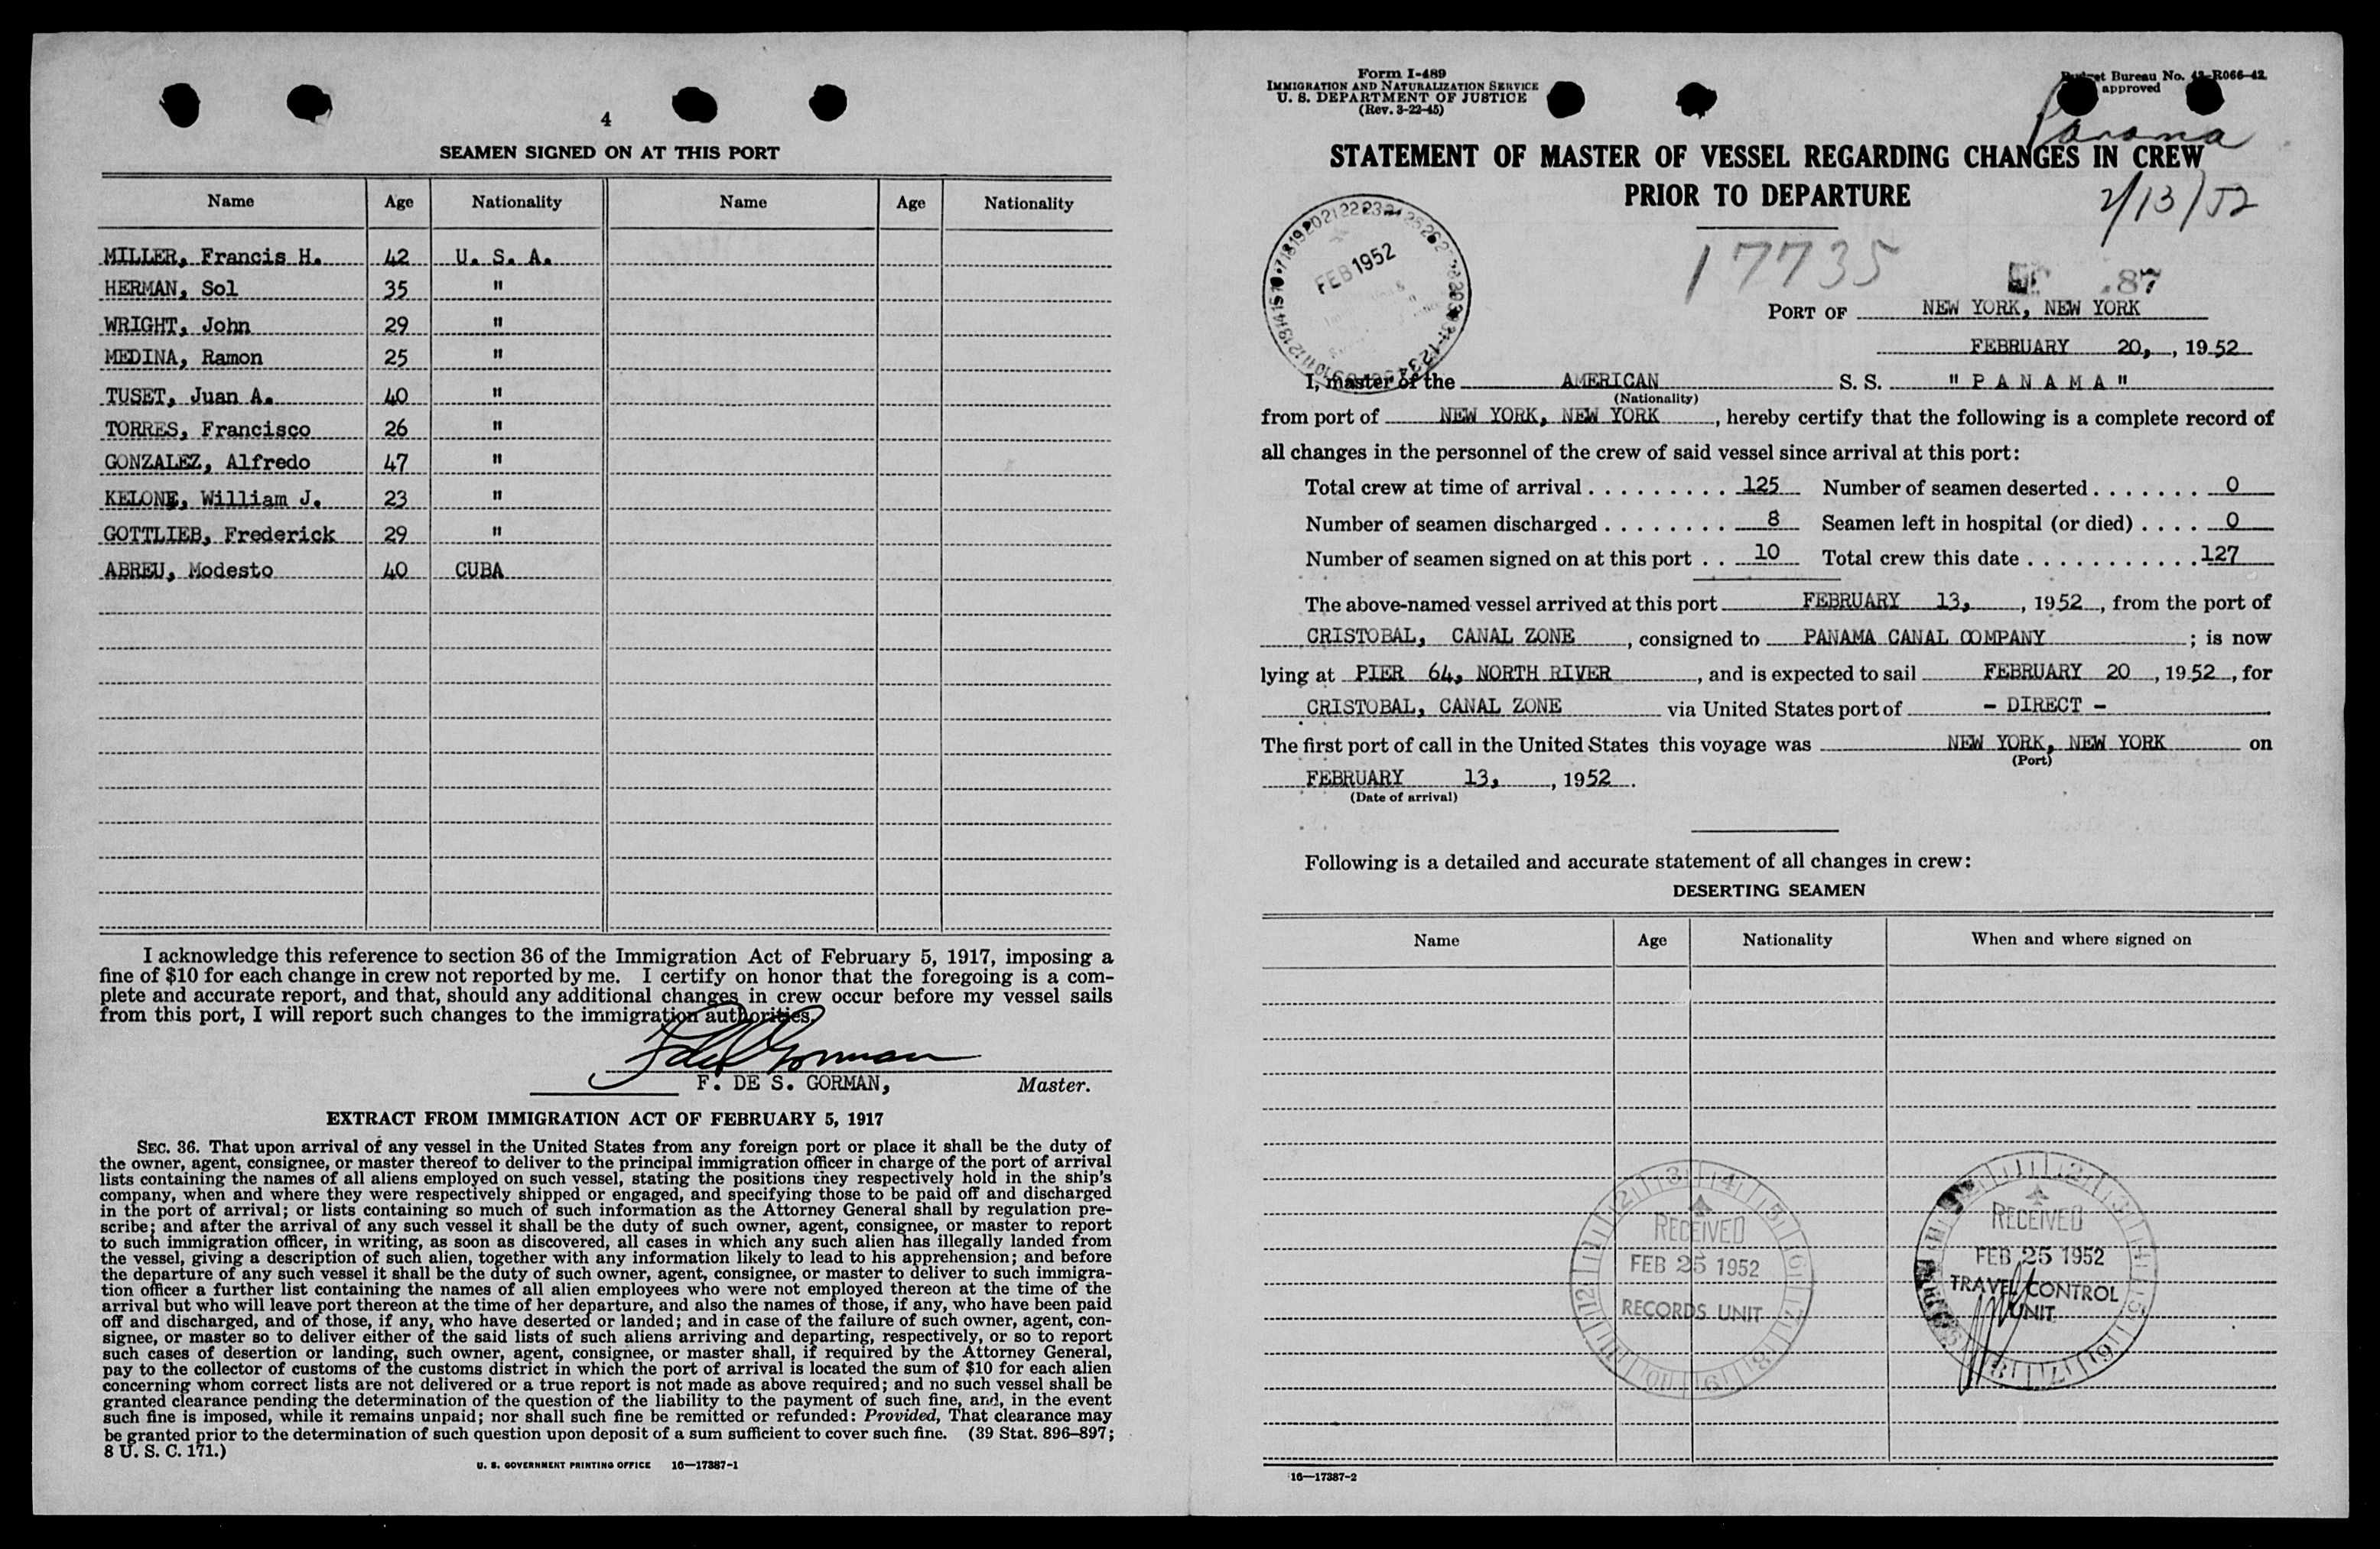 4
SEAMEN SIGNED ON AT THIS PORT
Name Age Nationality Name Age Nationality
MILLER, Francis H. 42 U. S. A.
HERMAN, Sol 35 "
WRIGHT, John 29 "
MEDINA, Ramon 25 "
TUSET, Juan A. 40 "
TORRES, Francisco 26 "
GONZALEZ, Alfredo 47 "
KELONE, William J. 23 "
GOTTLIEB, Frederick 29 "
ABREU, Modesto 40 CUBA
I acknowledge this reference to section 36 of the Immigration Act of February 5, 1917, imposing a
fine of $10 for each change in crew not reported by me. I certify on honor that the foregoing is a com-
plete and accurate report, and that, should any additional changes in crew occur before my vessel sails
from this port, I will report such changes to the immigration authorities.
F. DE S. GORMAN, Master.
EXTRACT FROM IMMIGRATION ACT OF FEBRUARY 5, 1917
SEC. 36. That upon arrival of any vessel in the United States from any foreign port or place it shall be the duty of
the owner, agent, consignee, or master thereof to deliver to the principal immigration officer in charge of the port of arrival
lists containing the names of all aliens employed on such vessel, stating the positions they respectively hold in the ship's
company, when and where they were respectively shipped or engaged, and specifying those to be paid off and discharged
in the port of arrival; or lists containing so much of such information as the Attorney General shall by regulation pre-
scribe; and after the arrival of any such vessel it shall be the duty of such owner, agent, consignee, or master to report
to such immigration officer, in writing, as soon as discovered, all cases in which any such alien has illegally landed from
the vessel, giving a description of such alien, together with any information likely to lead to his apprehension; and before
the departure of any such vessel it shall be the duty of such owner, agent, consignee, or master to deliver to such immigra-
tion officer a further list containing the names of all alien employees who were not employed thereon at the time of the
arrival but who will leave port thereon at the time of her departure, and also the names of those, if any, who have been paid
off and discharged, and of those, if any, who have deserted or landed; and in case of the failure of such owner, agent, con-
signee, or master so to deliver either of the said lists of such aliens arriving and departing, respectively, or so to report
such cases of desertion or landing, such owner, agent, consignee, or master shall, if required by the Attorney General,
pay to the collector of customs of the customs district in which the port of arrival is located the sum of $10 for each alien
concerning whom correct lists are not delivered or a true report is not made as above required; and no such vessel shall be
granted clearance pending the determination of the question of the liability to the payment of such fine, and, in the event
such fine is imposed, while it remains unpaid; nor shall such fine be remitted or refunded: Provided, That clearance may
be granted prior to the determination of such question upon deposit of a sum sufficient to cover such fine. (39 Stat. 896–897;
8 U. S. C. 171.)
U. S. GOVERNMENT PRINTING OFFICE 16—17387-1
Form I-489
IMMIGRATION AND NATURALIZATION SERVICE
U. S. DEPARTMENT OF JUSTICE
(Rev. 3-22-45)
Bureau No. R066-42
approved
Panama
STATEMENT OF MASTER OF VESSEL REGARDING CHANGES IN CREW
PRIOR TO DEPARTURE
2/13/52
FEB 1952
17735
.87
PORT OF NEW YORK, NEW YORK
FEBRUARY 20, , 19 52
I, master of the AMERICAN S. S. " P A N A M A "
(Nationality)
from port of NEW YORK, NEW YORK , hereby certify that the following is a complete record of
all changes in the personnel of the crew of said vessel since arrival at this port:
Total crew at time of arrival . . . . . . . . . 125 Number of seamen deserted . . . . . . . 0
Number of seamen discharged . . . . . . . . 8 Seamen left in hospital (or died) . . . . 0
Number of seamen signed on at this port . . 10 Total crew this date . . . . . . . . . . . 127
The above-named vessel arrived at this port FEBRUARY 13, , 19 52 , from the port of
CRISTOBAL, CANAL ZONE , consigned to PANAMA CANAL COMPANY ; is now
lying at PIER 64, NORTH RIVER , and is expected to sail FEBRUARY 20 , 19 52 , for
CRISTOBAL, CANAL ZONE via United States port of - DIRECT -
The first port of call in the United States this voyage was NEW YORK, NEW YORK on
(Port)
FEBRUARY 13, , 19 52 .
(Date of arrival)
Following is a detailed and accurate statement of all changes in crew:
DESERTING SEAMEN
Name Age Nationality When and where signed on
RECEIVED
FEB 25 1952
RECORDS UNIT
RECEIVED
FEB 25 1952
TRAVEL CONTROL
UNIT
16—17387-2